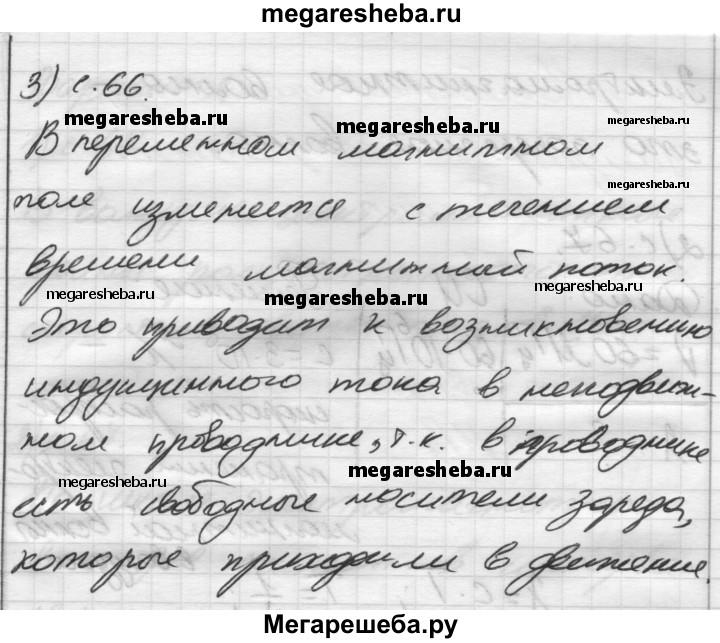 megaresheba.ru
3) с. 66.
megaresheba.ru
megaresheba.ru
megaresheba.ru
В переменном магнитном
megaresheba.ru
поле изменяется с течением
времени магнитный поток.
megaresheba.ru
megaresheba.ru
megaresheba.ru
Это приводит к возникновению
индукционного тока в неподвиж-
ном проводнике, т.к. в проводнике
megaresheba.ru
megaresheba.ru
есть свободные носители заряда,
которые приходили в движение.
Мегарешеба.ру